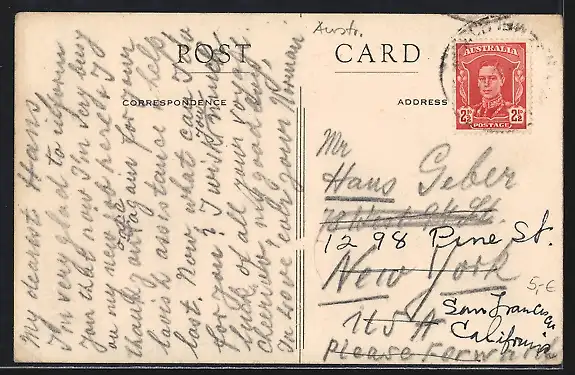 Austr.
POST CARD
CORRESPONDENCE
ADDRESS
AUSTRALIA
2½D 2½D
POSTAGE
My dearest Hans
I'm very glad to inform
you that now I'm very busy
on my new job here & I
thank you once again for your
lavish assistance & help
last. Now what can I do
for you? I wish you much
luck of all your voyage
cheerio, my good boy,
In love ever your Norman
Mr
Hans Geber
78 West St.
1298 Pine St.
New York
San Francisco
USA
California
Please Forward
5,-€